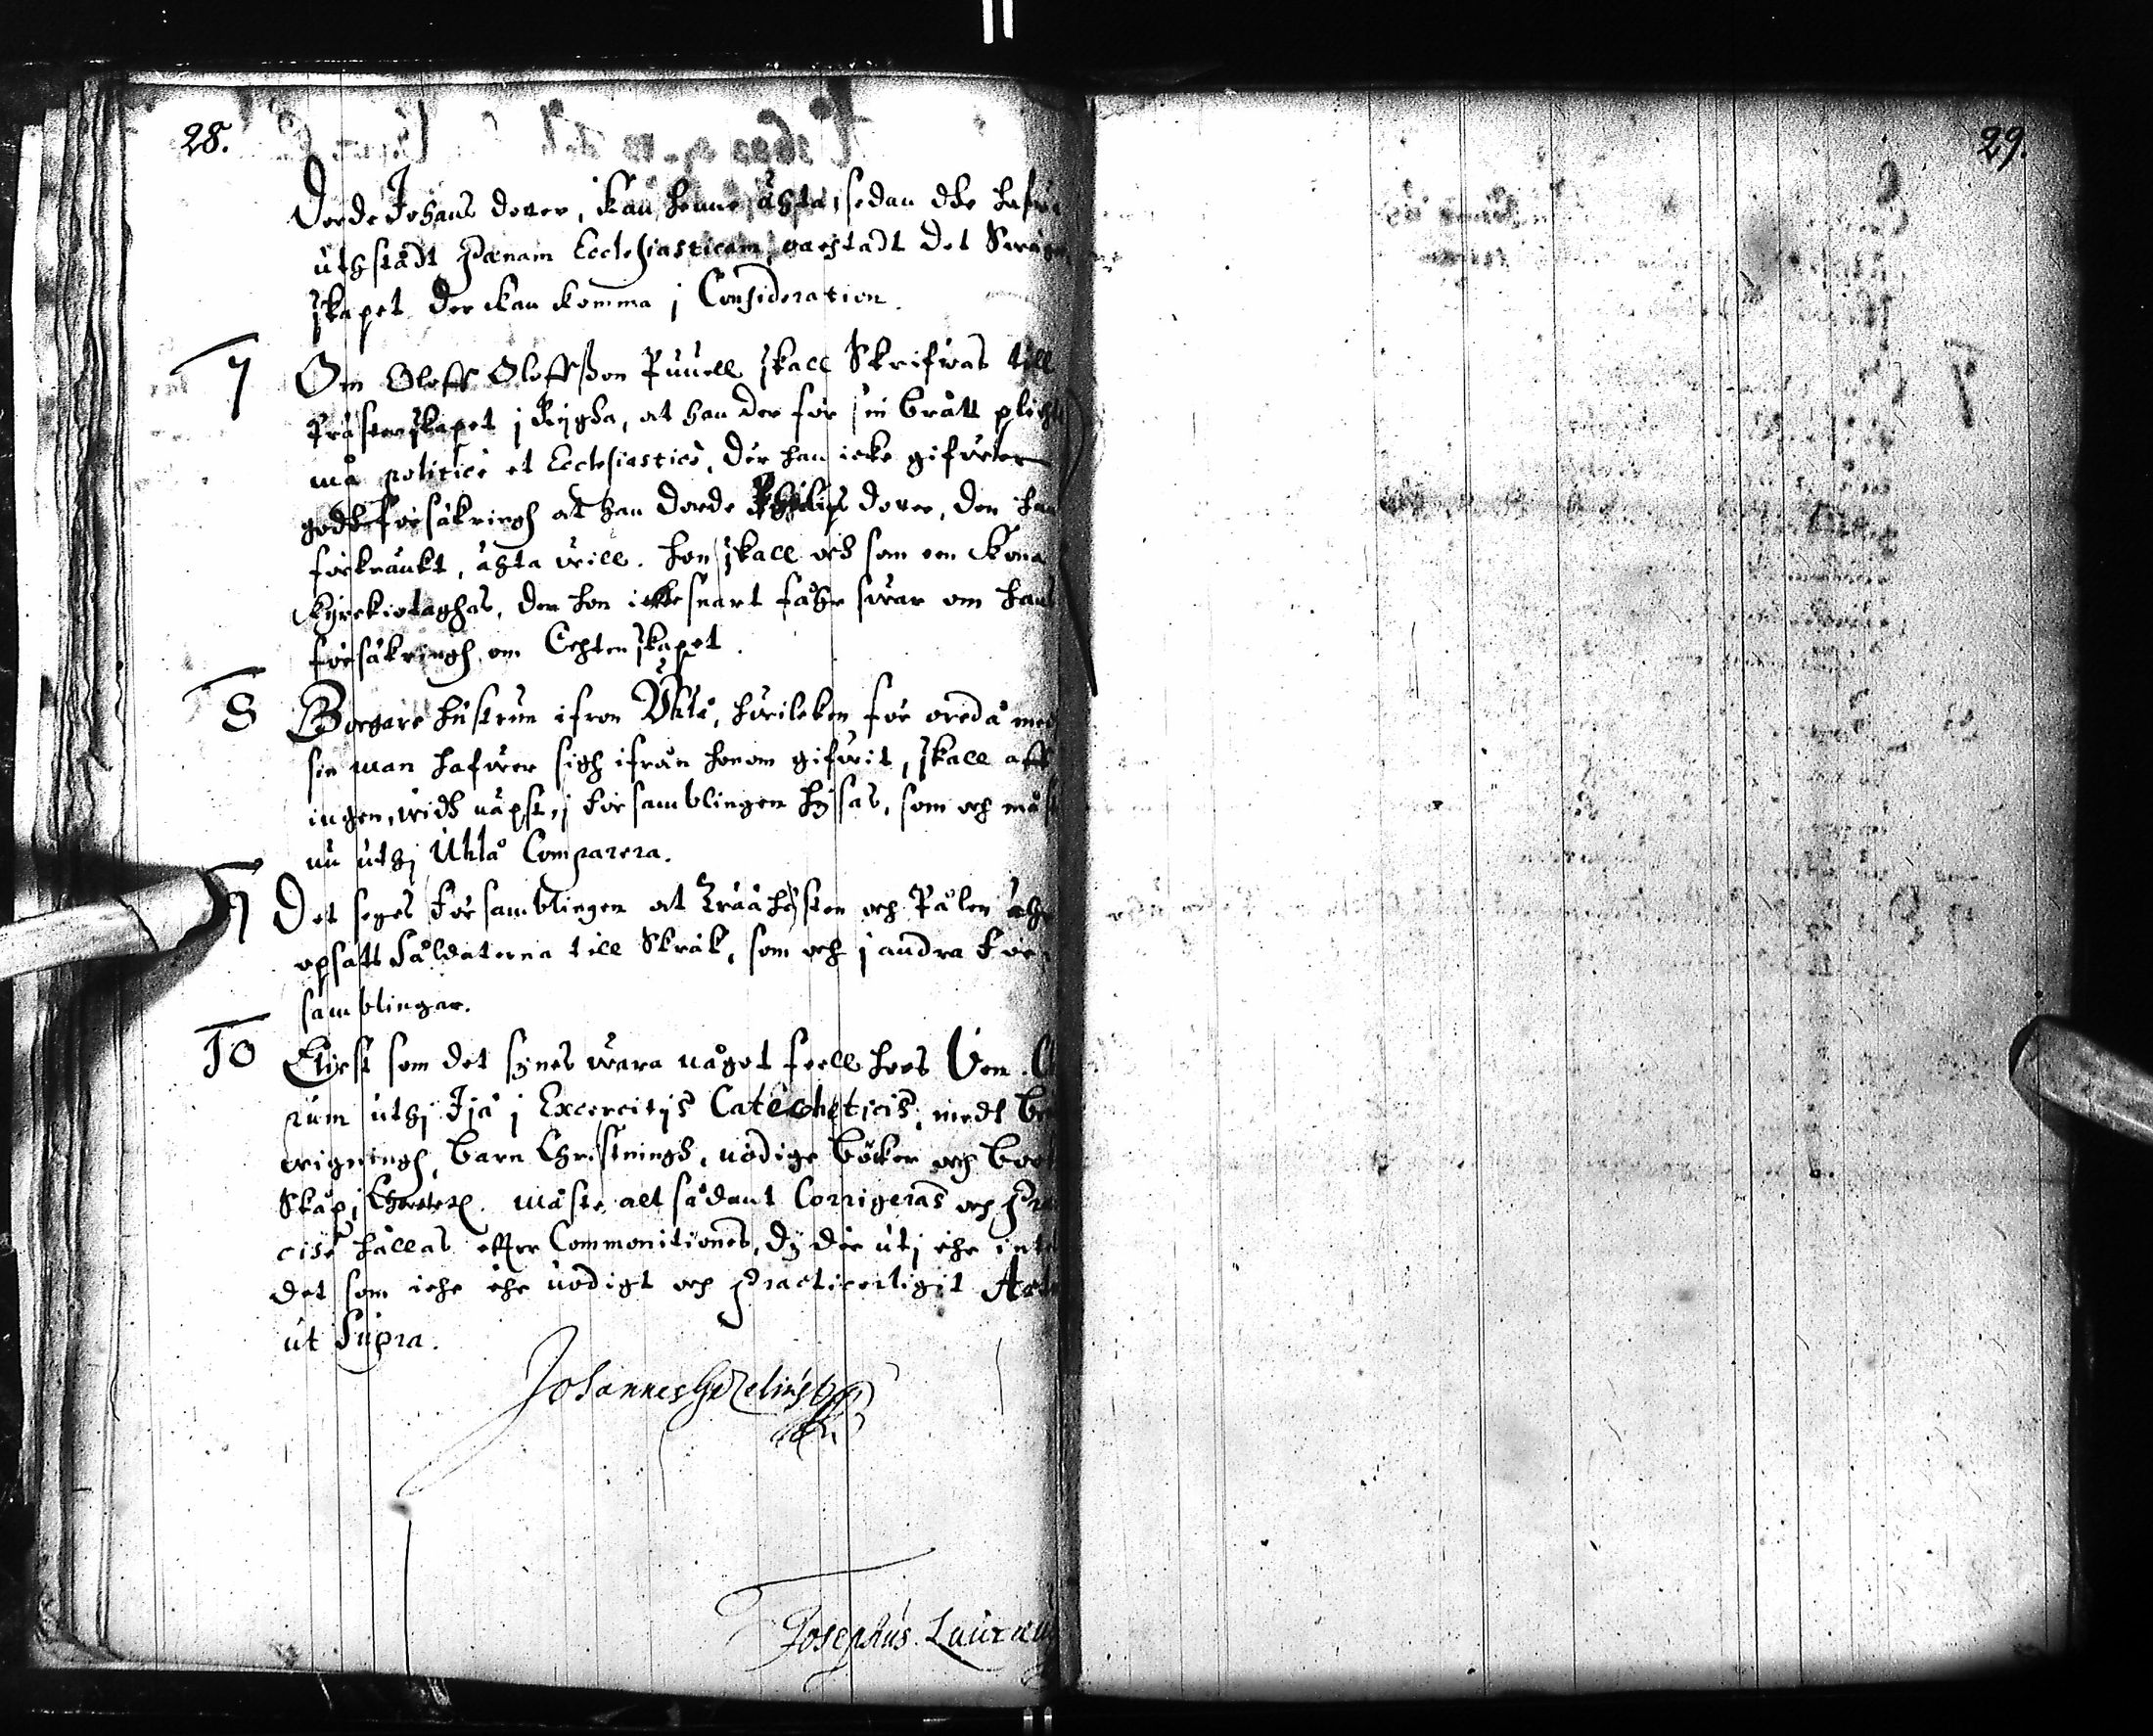 28.
Dorde Johans doter, kan henne ächta, sedan dhe hafwa
uthstådt pænam Ecclesiasticam, oachtadt det Swåger
skapet der kan komma i Consideration.
7 Om Oloff Oloffsson skall Skrifwas till
Prästerskapet i Rygha, at han der för sin brått plichta
må politicè et Ecclesiasticè, der han icke gifwer
godh försäkringh at han Dorde doter, den han
förkränkt, ächta will. hon skall och som een Kona
Kyrckiotaghas, der hon icke snart fåhr swar om hans
försäkringh om Echtenskapet.
8 Borgare hustrun ifron Uhlå, hwilcken för oreda med
sin man hafwer sigh ifrån honom gifwit, skall aff
ingen, widh näpst, i församblingen hysas, som och måste
nu uthj Uhlå Comparera.
9 Det seges församblingen at Träähästen och Pålen ähr
opsatt Såldaterna till Skräk, som och i andra För-
samblingar.
10 Ehrst som det synes wara något feell hoos Ven. Cle
rum uthj Ijå i Excercitijs Catecheticis, medh Be
wigningh, Barn Christningh, nödige böcker och
Skåp i måste alt sådant Corrigeras och Præ
cisè hållas effter Commonitiones, dy der utj ehr inte
det som iche ehr nödigt och Practicerligit
ut Supra.
Johannes Gezelius
Josephus Lauræus
29.